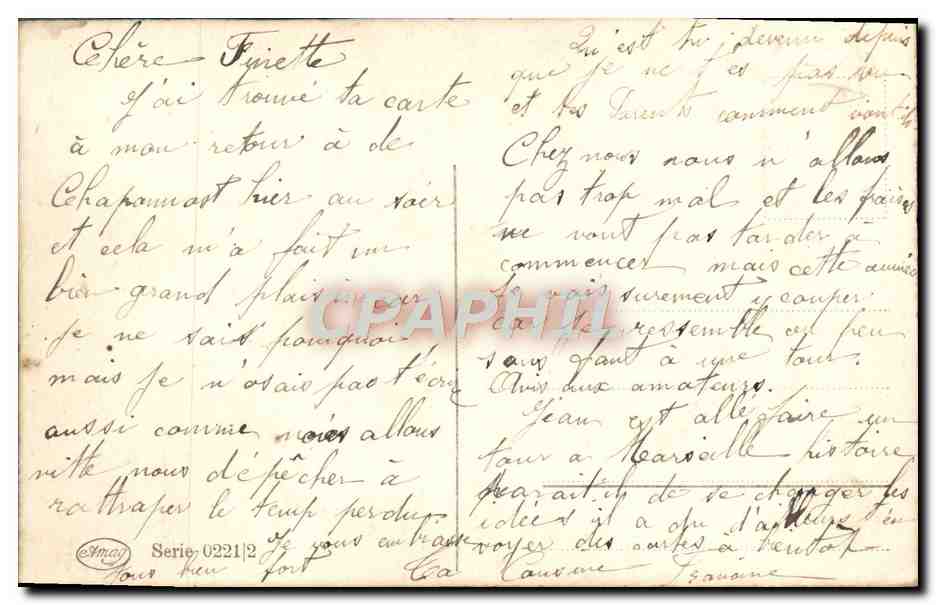 Chère Finette
J'ai trouvé ta carte
à mon retour à de
Chaponnost hier au soir
et cela m'a fait un
bien grand plaisir car
je ne sais pourquoi
mais je n'osais pas t'écrire
aussi comme nous allons
vitte nous dépêcher à
rattraper le temp perdu.
Je vous embrasse
tous bien fort
Amag Serie 0221/2
Qu'est tu devenu depuis
que je ne t'es pas vu
et tes Parents comment vont ils
Chez nous nous n'allons
pas trop mal et les fraises
ne vont pas tarder à
commencer mais cette année
je vais surement y couper
car je ressemble un peu
sans faut à une tour.
Avis aux amateurs.
Jean est allé faire un
tour a Marseille histoire
parait-il de se changer les
idées il a du d'ailleurs t'en
voyer des cartes à bientôt
Ta Cousine
CPAPHIL